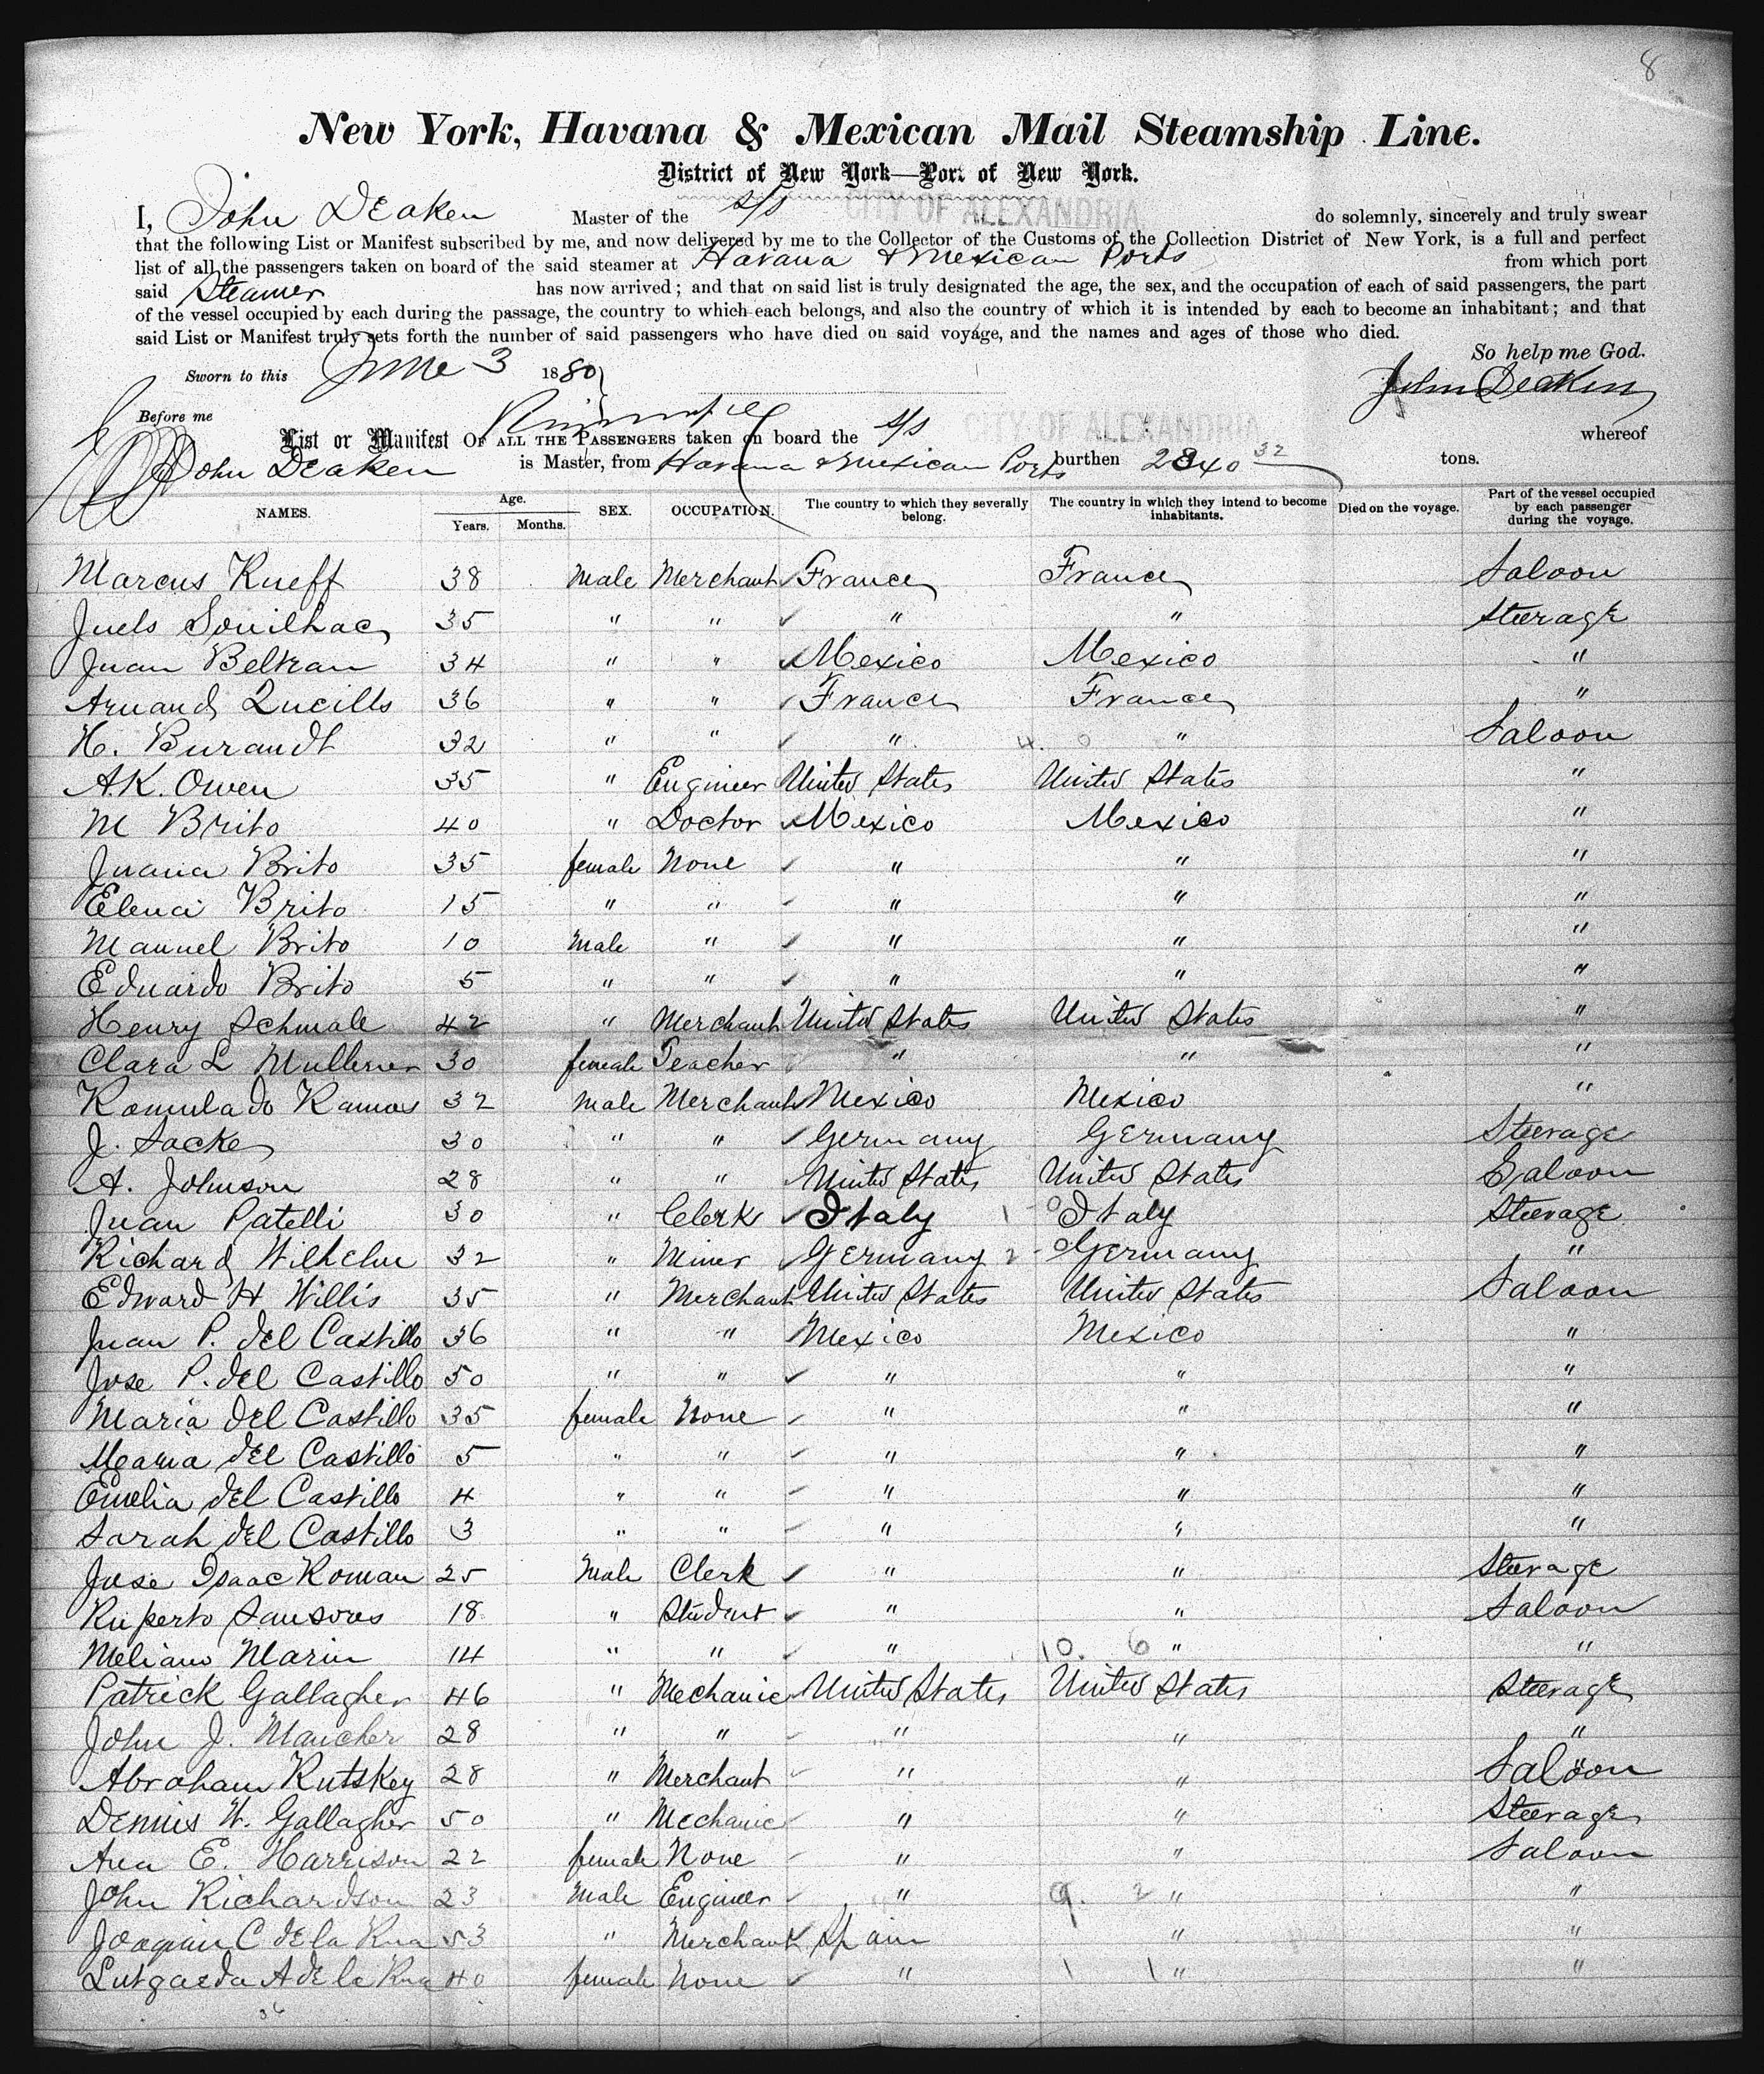 8
New York, Havana & Mexican Mail Steamship Line.
District of New York—Port of New York.
I, John Deaken Master of the s/s CITY OF ALEXANDRIA do solemnly, sincerely and truly swear
that the following List or Manifest subscribed by me, and now delivered by me to the Collector of the Customs of the Collection District of New York, is a full and perfect
list of all the passengers taken on board of the said steamer at Havana & Mexican Ports from which port
said Steamer has now arrived; and that on said list is truly designated the age, the sex, and the occupation of each of said passengers, the part
of the vessel occupied by each during the passage, the country to which each belongs, and also the country of which it is intended by each to become an inhabitant; and that
said List or Manifest truly sets forth the number of said passengers who have died on said voyage, and the names and ages of those who died.
So help me God.
Sworn to this June 3 1880 John Deaken
Before me
List or Manifest OF ALL THE PASSENGERS taken on board the s/s CITY OF ALEXANDRIA whereof
John Deaken is Master, from Havana & Mexican Ports burthen 2840 32 tons.
NAMES. Age. Years. Months. SEX. OCCUPATION. The country to which they severally belong. The country in which they intend to become inhabitants. Died on the voyage. Part of the vessel occupied by each passenger during the voyage.
Marcus Kueff 38 Male Merchant France France Saloon
Juels Souilhac 35 " " " " Steerage
Juan Beltran 34 " " Mexico Mexico "
Arnaud Lucills 36 " " France France "
H. Burandt 32 " " " 4. 0 " Saloon
A.K. Owen 35 " Engineer United States United States "
M Brito 40 " Doctor Mexico Mexico "
Juana Brito 35 female None " " "
Elena Brito 15 " " " " "
Manuel Brito 10 Male " " " "
Eduardo Brito 5 " " " " "
Henry Schmale 42 " Merchant United States United States "
Clara L Mullener 30 female Teacher " " "
Romulado Ramos 32 Male Merchant Mexico Mexico "
J. Sacke 30 " " Germany Germany Steerage
A. Johnson 28 " " United States United States Saloon
Juan Patelli 30 " Clerk Italy 1 - 0 Italy Steerage
Richard Wilhelm 32 " Miner Germany 2 - 0 Germany "
Edward H Willis 35 " Merchant United States United States Saloon
Juan P. del Castillo 36 " " Mexico Mexico "
Jose P. del Castillo 50 " " " " "
Maria del Castillo 35 female None " " "
Maria del Castillo 5 " " " " "
Emelia del Castillo 4 " " " " "
Sarah del Castillo 3 " " " " "
Jose Isaac Roman 25 Male Clerk " " Steerage
Ruperto Sansores 18 " Student " " Saloon
Meliano Marin 14 " " " 10. 6 " "
Patrick Gallagher 46 " Mechanic United States United States Steerage
John J. Maucher 28 " " " " "
Abraham Rutskey 28 " Merchant " " Saloon
Dennis W. Gallagher 50 " Mechanic " " Steerage
Ana E. Harrison 22 female None " " Saloon
John Richardson 23 Male Engineer " 9. 2 " "
Joaquin C de la Rua 53 " Merchant Spain " "
Lutgarda A de la Rua 40 female None " 1 1 " "
36